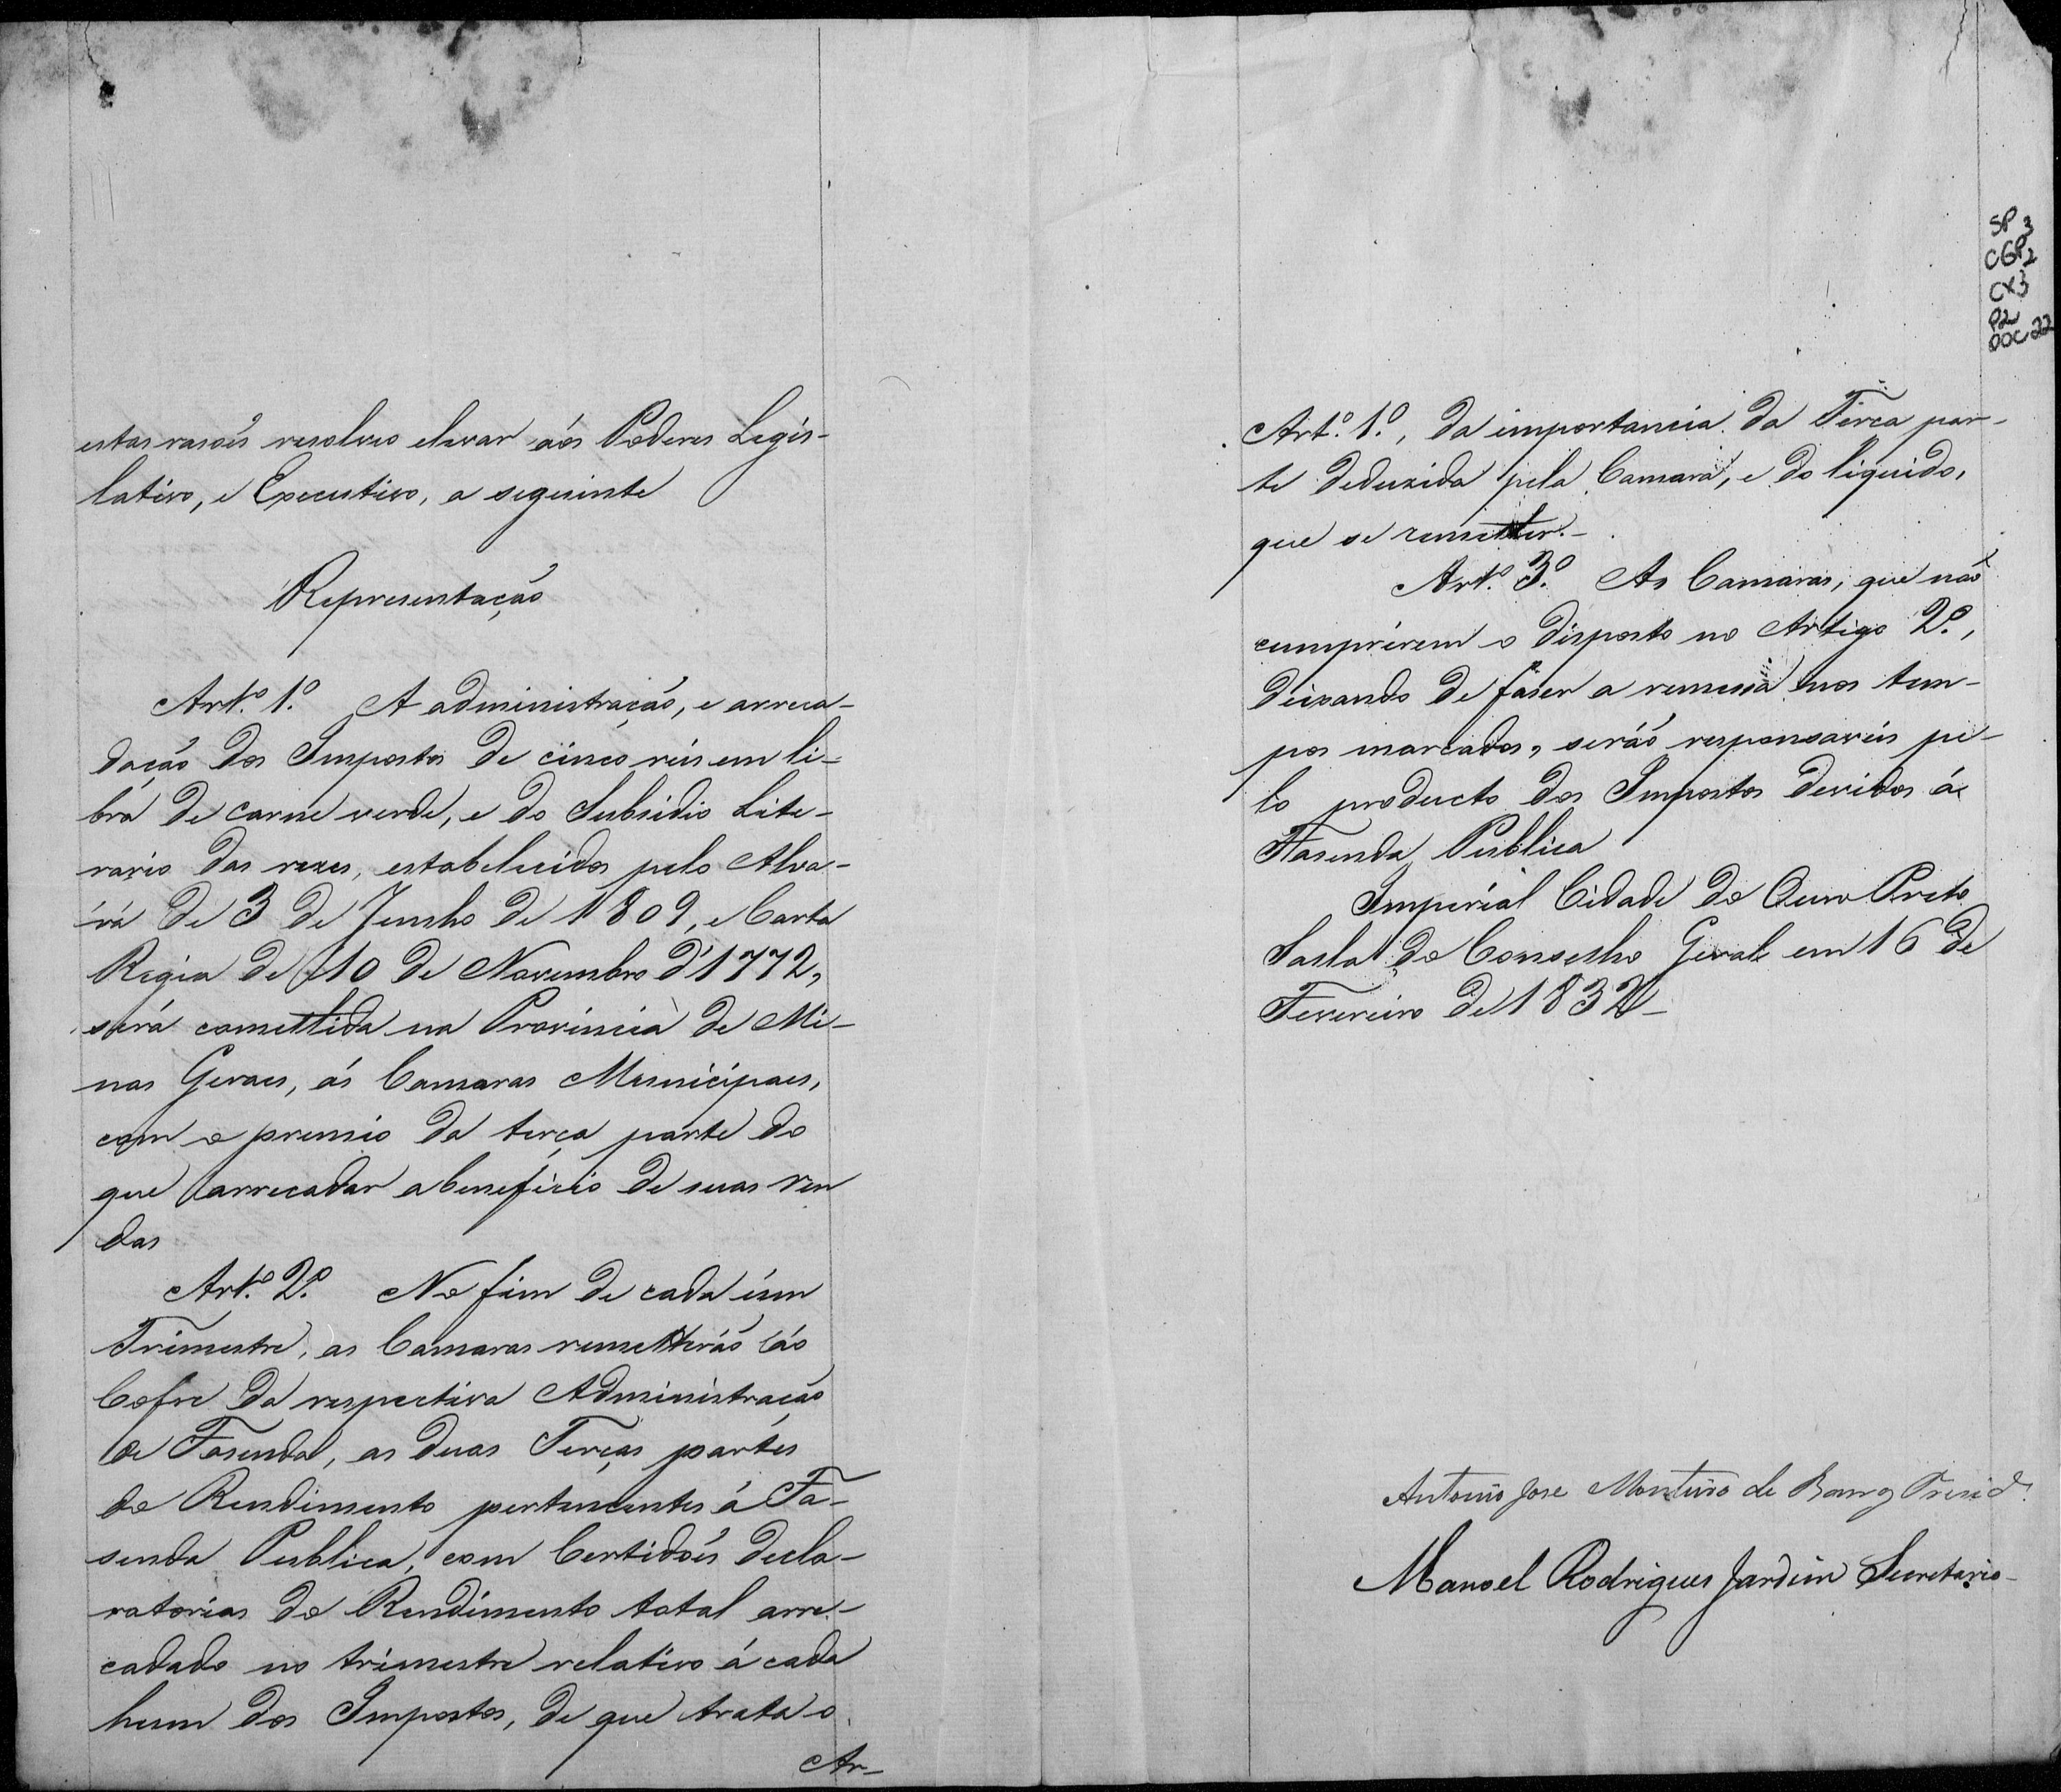 estas rasoẽs resolveo elevar aós Poderes Legis-
lativo, e Executivo, a seguinte
Representação
Art.º 1.º A administração, e arreca-
dação dos Impostos de cinco réis em li-
bra de carne verde, e do Subsidio Lite-
rario das rezes, estabelecidos pelo Alva-
rá de 3 de Junho de 1809, e Carta
Regia de 10 de Novembro d'1772,
será comettida na Provincia de Mi-
nas Geraes, ás Camaras Municipaes,
com o premio da terça parte do
que arrecadar a beneficio de suas ren
das
Art.º 2.º No fim de cada úm
Trimestre, as Camaras remetteráõ áo
Cofre da respectiva Administração
de Fasenda, as duas Terças partes
do Rendimento pertencentes á Fa-
senda Publica, com Certidoẽs decla-
ratorias do Rendimento total arre-
cadado no trimestre relativo á cada
hum dos Impostos, de que trata o
Ar-
SP 3
CGP2
CX3
P2
DOC 22
Art.º 1.º, da importancia da Terça par-
te deduzida pela Camara, e do liquido,
que se remetter.-
Art.º 3.º As Camaras, que não
cumprirem o disposto no Artigo 2.º,
deixando de faser a remessa nos tem-
pos marcados, seráõ responsaveis pe-
lo producto dos Impostos devidos á
Fasenda Publica
Imperial Cidade do Ouro Preto
Salla do Conselho Geral em 16 de
Fevereiro de 1832-
Antonio Jose Monteiro de Barros Presid.
Manoel Rodrigues Jardim Secretario-